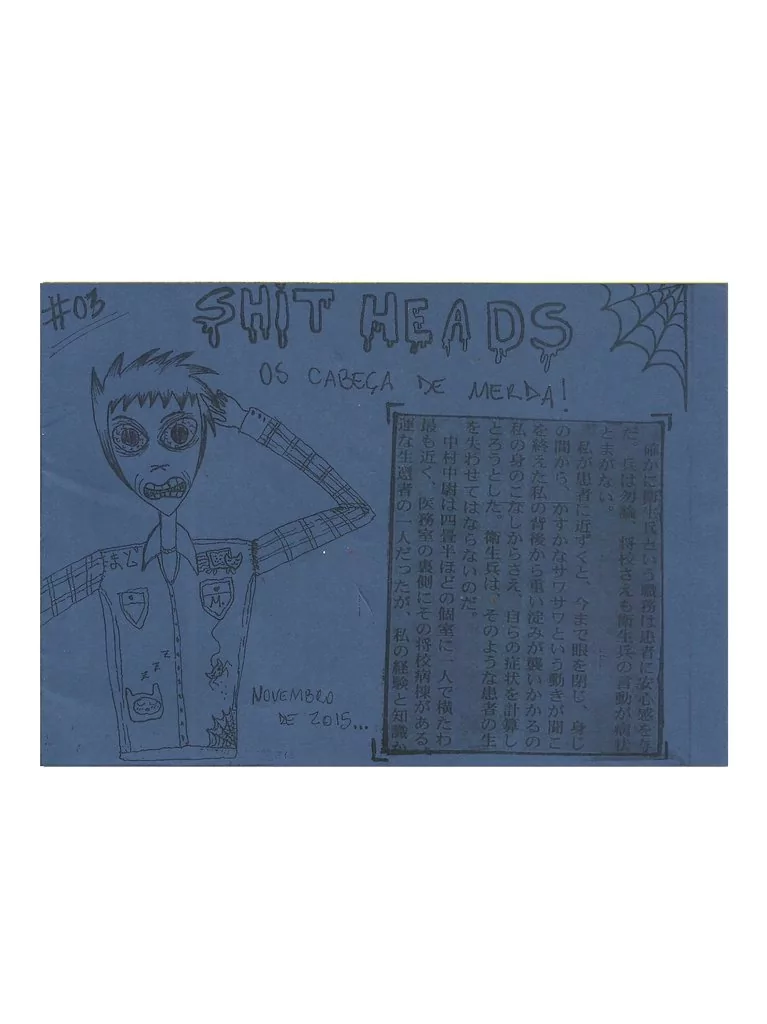 #03
SHIT HEADS
OS CABEÇA DE MERDA!
確かに衛生兵という職務は患者に安心感を与
だ。兵は勿論、将校さえも衛生兵の言動が病状
とまがない。
私が患者に近ずくと、今まで眼を閉じ、身じ
の間から、かすかなサワサワという動きが聞こ
を終えた私の背後から重い淀みが襲いかかるの
私の身のこなしからさえ、自らの症状を計算し
とろうとした。衛生兵は、そのような患者の生
を失わせてはならないのだ。
中村中尉は四畳半ほどの個室に一人で横たわ
最も近く、医務室の裏側にその将校病棟がある。
運な生還者の一人だったが、私の経験と知識か
M.
z z z
NOVEMBRO
DE 2015...